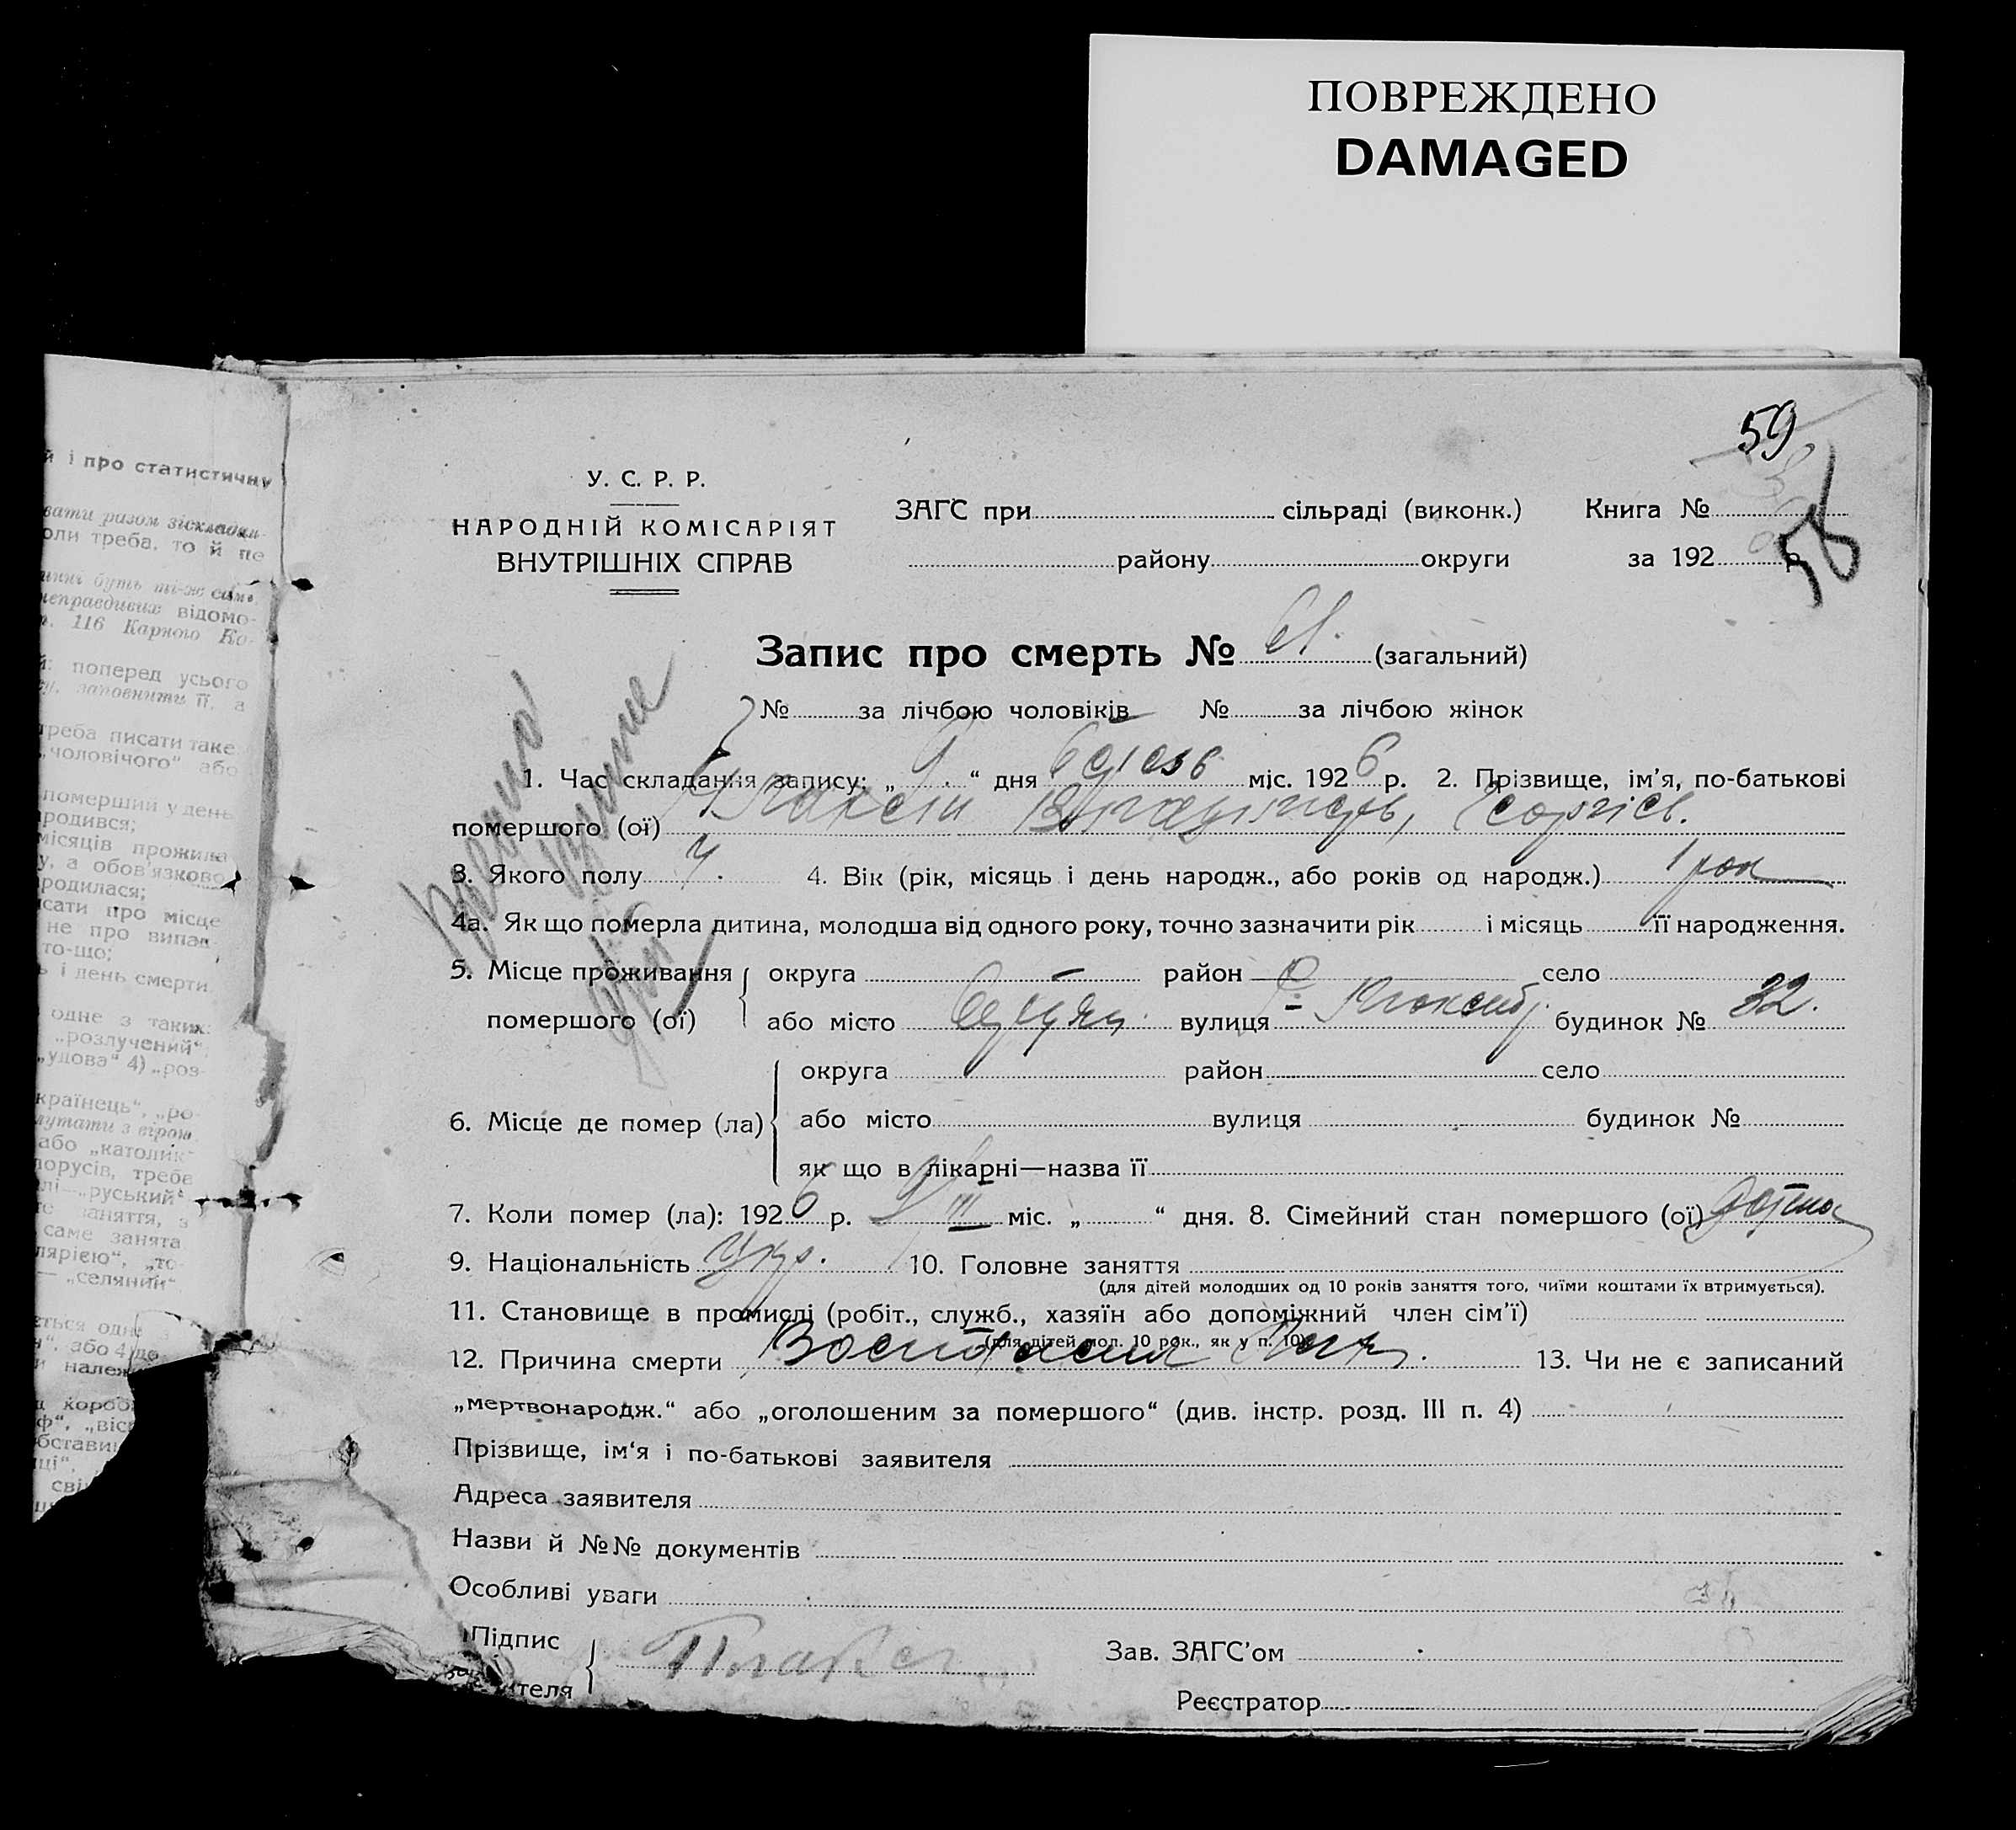 ПОВРЕЖДЕНО
DAMAGED
59
56
й і про статистичну
вати разом
оли треба, то й не
буть ті-ж самі
неправдивих відомо-
116 Карного Ко-
поперед усього
заповнити її, а
треба писати таке
„чоловічого“ або
померший у день
родився;
місяців прожила
у, а обов'язково
родилася;
исати про місце
не про випад
то-що;
ь і день смерти
одне з таких:
„розлучений“,
„удова“ 4) „роз-
країнець“, „ро-
мутати з вірою
або „католик“
лорусів, треба
„руський“
заняття, з
саме занята
лярією“, „то-
— „селянин“
ється одне з
або 4) до
належ
короб
ф“, „віс
бстави
ці“,
сві
У. С. Р. Р.
НАРОДНІЙ КОМІСАРІЯТ
ВНУТРІШНІХ СПРАВ
ЗАГС при сільраді (виконк.) Книга №
району округи за 192 р.
Запис про смерть № 61. (загальний)
№ за лічбою чоловіків № за лічбою жінок
1. Час складання запису: „ 9 “ дня міс. 1926 р. 2. Прізвище, ім'я, по-батькові
помершого (ої) Георгієв.
3. Якого полу ч. 4. Вік (рік, місяць і день народж., або років од народж.) 1 рок
4а. Як що померла дитина, молодша від одного року, точно зазначити рік і місяць її народження.
5. Місце проживання округа — район село
помершого (ої) або місто вулиця будинок № 32.
6. Місце де помер (ла) округа район село
або місто вулиця будинок №
як що в лікарні—назва її
7. Коли помер (ла): 1926 р. III міс. „ “ дня. 8. Сімейний стан помершого (ої)
9. Національність Укр. 10. Головне заняття
(для дітей молодших од 10 років заняття того, чиїми коштами їх втримується).
11. Становище в промислі (робіт., служб., хазяїн або допоміжний член сім'ї)
(для дітей мол. 10 рок., як у п. 10)
12. Причина смерти 13. Чи не є записаний
„мертвонародж.“ або „оголошеним за помершого“ (див. інстр. розд. III п. 4)
Прізвище, ім'я і по-батькові заявителя
Адреса заявителя
Назви й №№ документів
Особливі уваги
Підпис
заявителя
Зав. ЗАГС'ом
Реєстратор